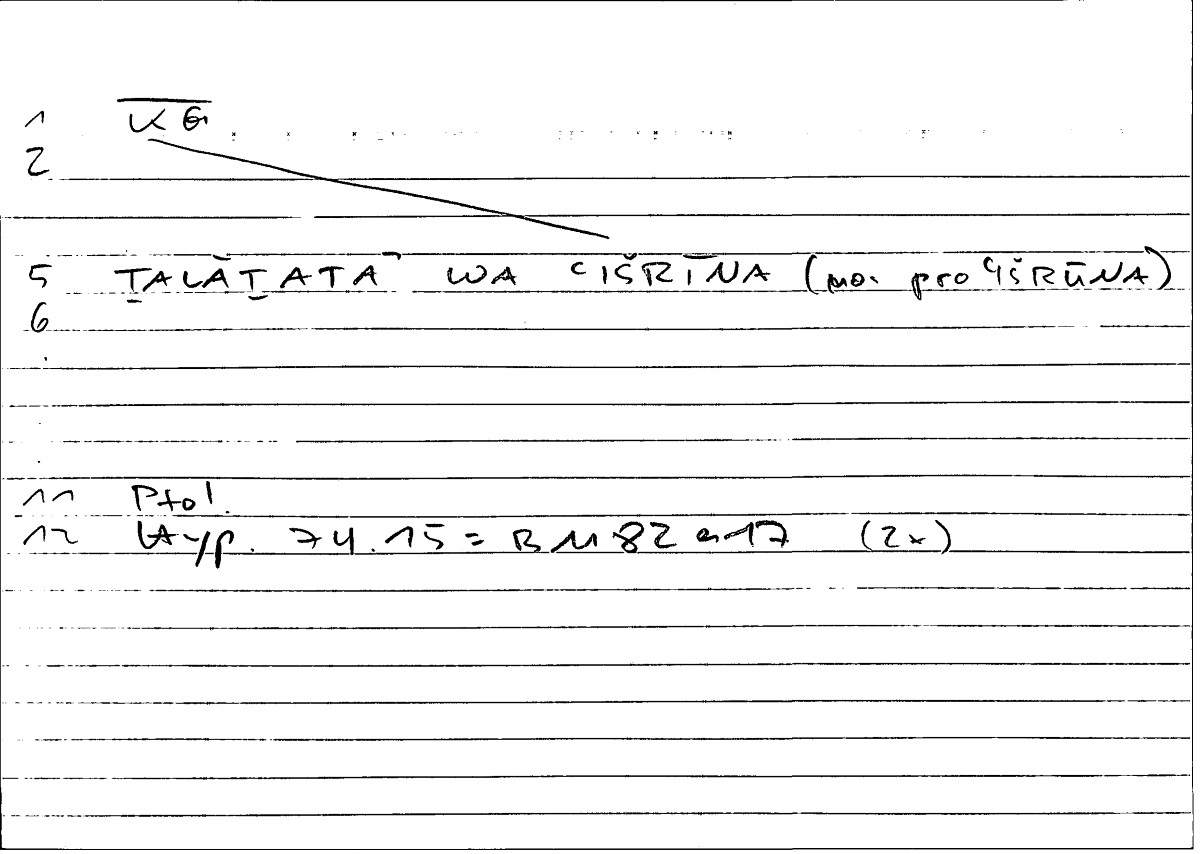 1 K̅G̅
2
5 ṮALĀṮATA WA ʿIŠRĪNA (mo. pro ʿIŠRŪNA)
6
11 Ptol.
12 Hyp. 74.15 = BM 82 a 17 (2x)